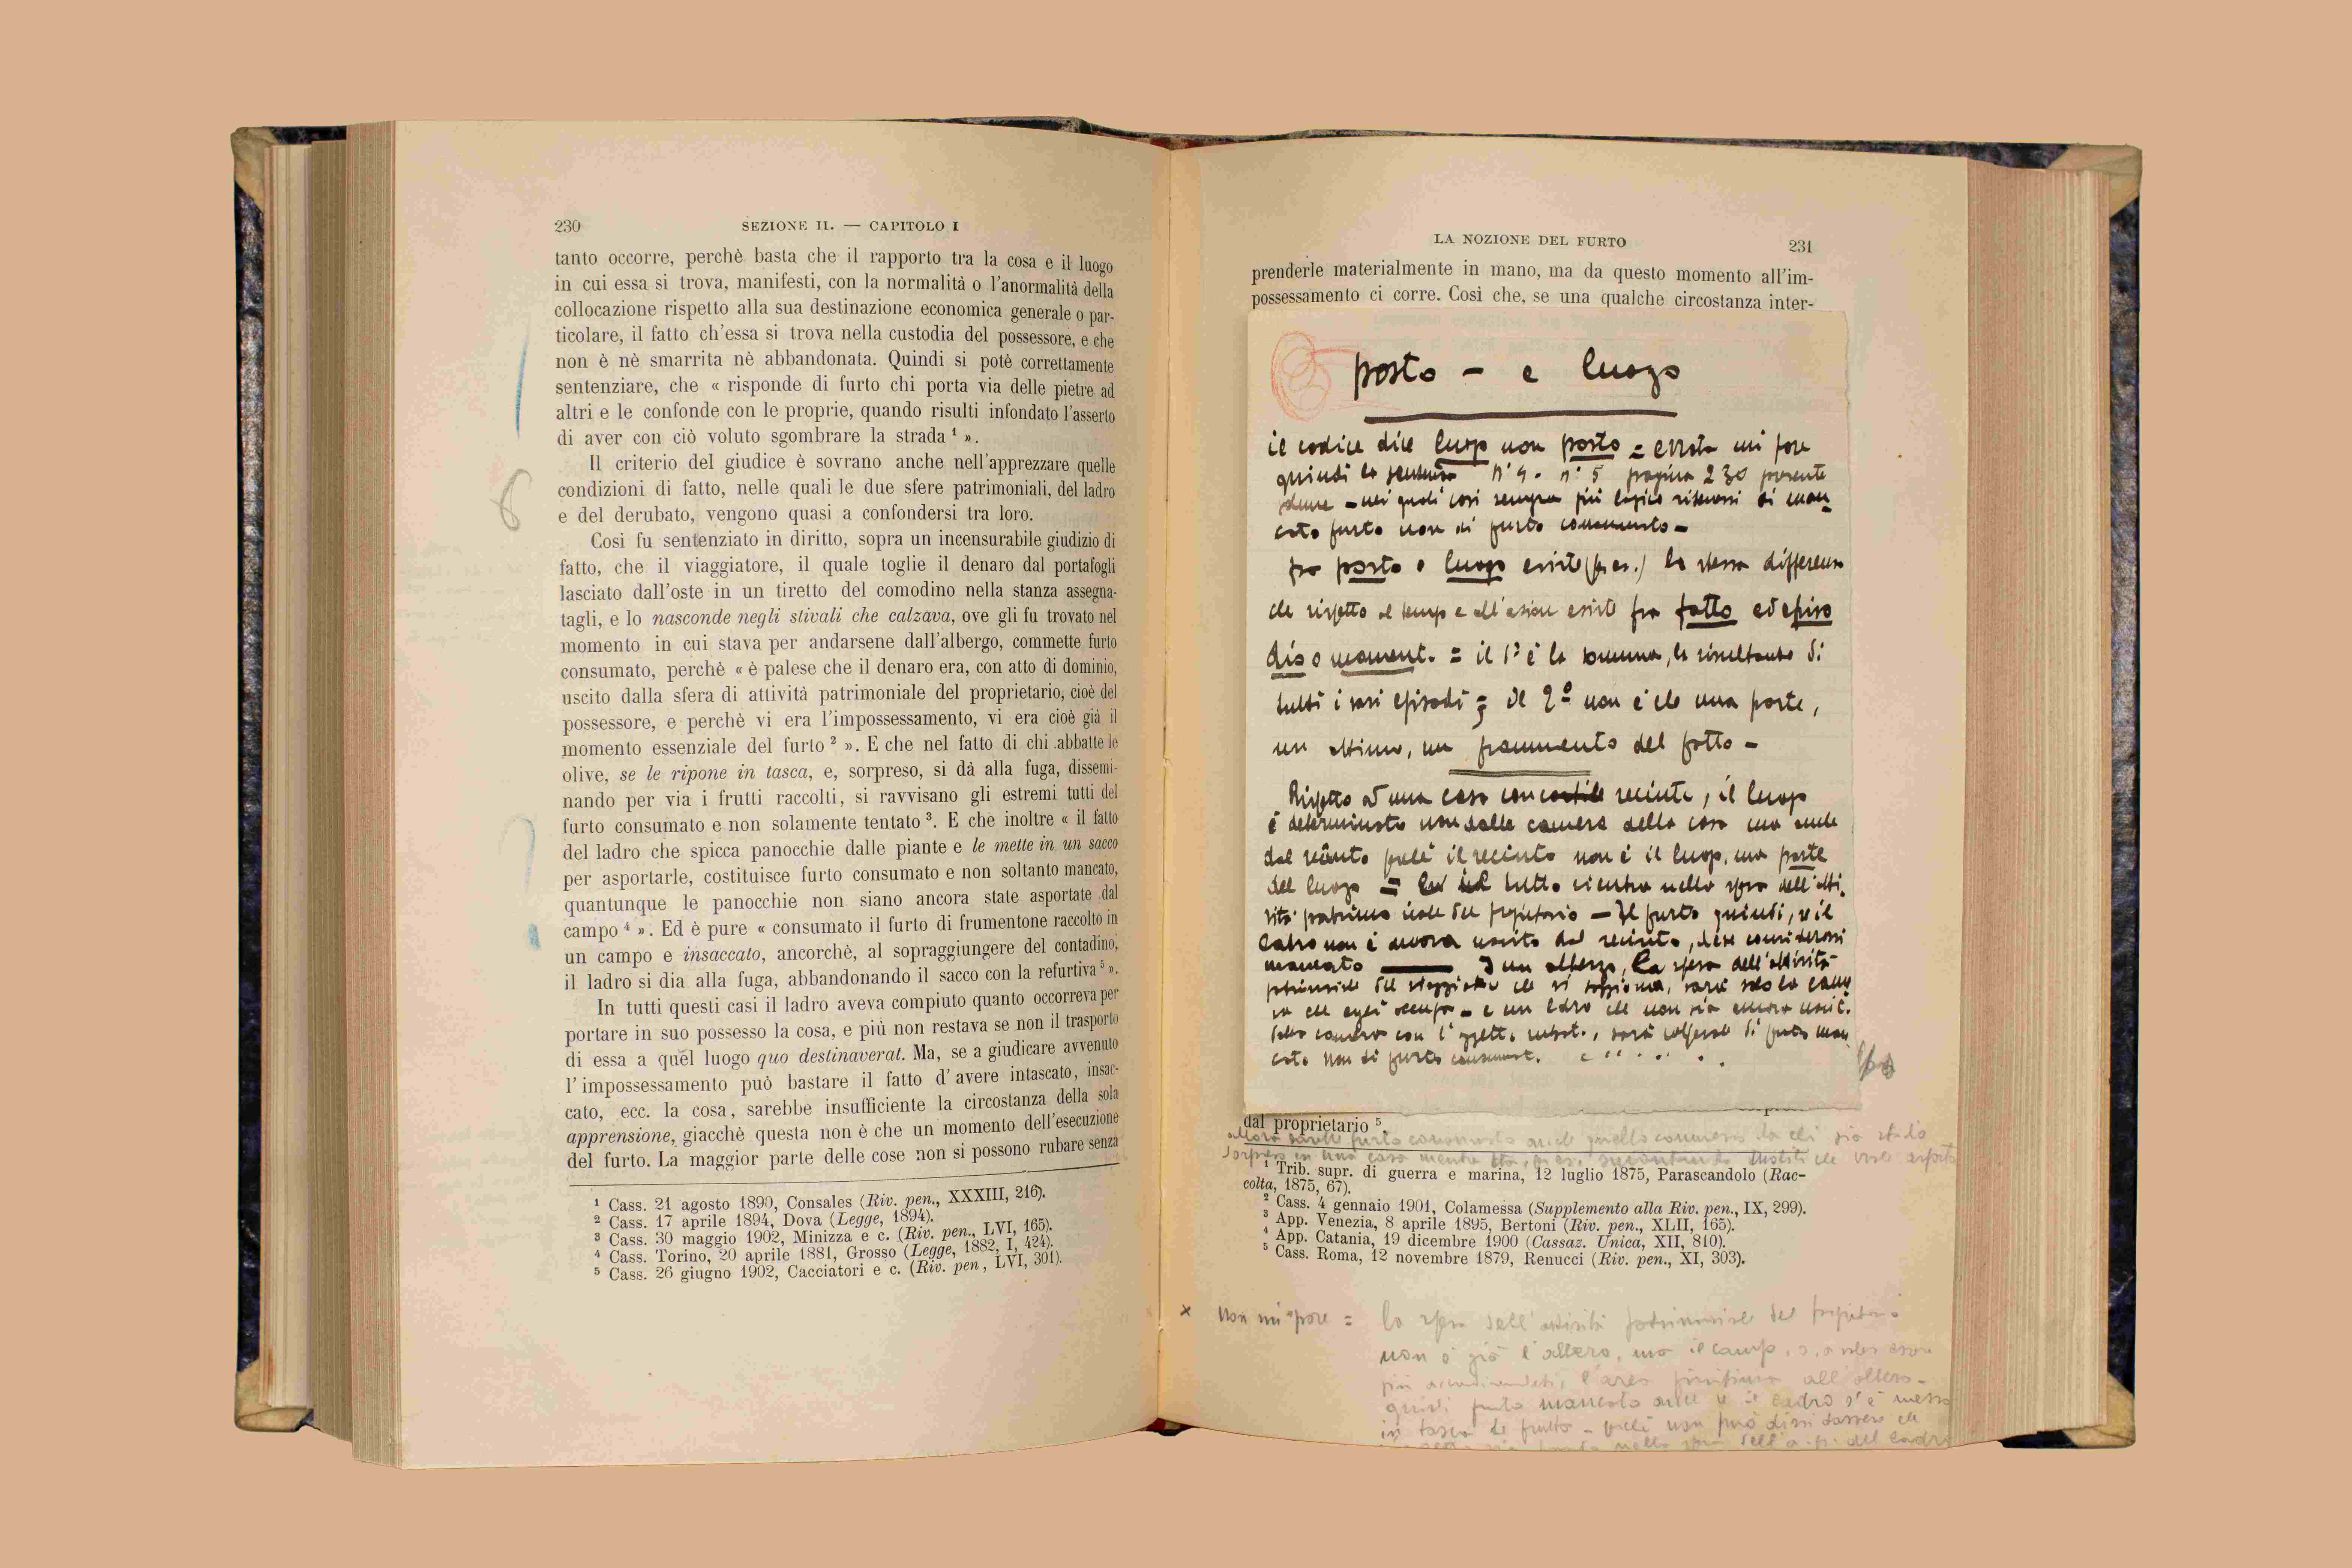 230
SEZIONE II. — CAPITOLO I
tanto occorre, perchè basta che il rapporto tra la cosa e il luogo
in cui essa si trova, manifesti, con la normalità o l'anormalità della
collocazione rispetto alla sua destinazione economica generale o par-
ticolare, il fatto ch'essa si trova nella custodia del possessore, e che
non è nè smarrita nè abbandonata. Quindi si potè correttamente
sentenziare, che « risponde di furto chi porta via delle pietre ad
altri e le confonde con le proprie, quando risulti infondato l'asserto
di aver con ciò voluto sgombrare la strada ¹ ».
Il criterio del giudice è sovrano anche nell'apprezzare quelle
condizioni di fatto, nelle quali le due sfere patrimoniali, del ladro
e del derubato, vengono quasi a confondersi tra loro.
Così fu sentenziato in diritto, sopra un incensurabile giudizio di
fatto, che il viaggiatore, il quale toglie il denaro dal portafogli
lasciato dall'oste in un tiretto del comodino nella stanza assegna-
tagli, e lo nasconde negli stivali che calzava, ove gli fu trovato nel
momento in cui stava per andarsene dall'albergo, commette furto
consumato, perchè « è palese che il denaro era, con atto di dominio,
uscito dalla sfera di attività patrimoniale del proprietario, cioè del
possessore, e perchè vi era l'impossessamento, vi era cioè già il
momento essenziale del furto ² ». E che nel fatto di chi abbatte le
olive, se le ripone in tasca, e, sorpreso, si dà alla fuga, dissemi-
nando per via i frutti raccolti, si ravvisano gli estremi tutti del
furto consumato e non solamente tentato ³. E che inoltre « il fatto
del ladro che spicca panocchie dalle piante e le mette in un sacco
per asportarle, costituisce furto consumato e non soltanto mancato,
quantunque le panocchie non siano ancora state asportate dal
campo ⁴ ». Ed è pure « consumato il furto di frumentone raccolto in
un campo e insaccato, ancorchè, al sopraggiungere del contadino,
il ladro si dia alla fuga, abbandonando il sacco con la refurtiva ⁵ ».
In tutti questi casi il ladro aveva compiuto quanto occorreva per
portare in suo possesso la cosa, e più non restava se non il trasporto
di essa a quel luogo quo destinaverat. Ma, se a giudicare avvenuto
l'impossessamento può bastare il fatto d'avere intascato, insac-
cato, ecc. la cosa, sarebbe insufficiente la circostanza della sola
apprensione, giacchè questa non è che un momento dell'esecuzione
del furto. La maggior parte delle cose non si possono rubare senza
¹ Cass. 21 agosto 1890, Consales (Riv. pen., XXXIII, 216).
² Cass. 17 aprile 1894, Dova (Legge, 1894).
³ Cass. 30 maggio 1902, Minizza e c. (Riv. pen., LVI, 165).
⁴ Cass. Torino, 20 aprile 1881, Grosso (Legge, 1882, I, 424).
⁵ Cass. 26 giugno 1902, Cacciatori e c. (Riv. pen, LVI, 301).
LA NOZIONE DEL FURTO
231
prenderle materialmente in mano, ma da questo momento all'im-
possessamento ci corre. Così che, se una qualche circostanza inter-
posto - e luogo
il codice dice luogo non posto = errata mi pare
quindi la sentenza n° 4 - n° 5 pagina 230 presente
- nei quali casi sempre più logico ritenersi di man-
cato furto non di furto consumato -
fra posto e luogo esiste (p. es.) la stessa differenza
che rispetto al tempo e all'azione esiste fra fatto ed episo
dio o momento = il 1° è la somma, la risultante di
tutti i vari episodi ; il 2° non è che una parte,
un attimo, un frammento del fatto -
Rispetto ad una casa con cortile recinto, il luogo
è determinato non dalle camere della casa ma anche
dal recinto perchè il recinto non è il luogo, ma parte
del luogo = tutto rientra nella sfera dell'atti-
vità patrimoniale del proprietario - Il furto quindi, se il
ladro non è ancora uscito dal recinto, deve considerarsi
mancato — In un albergo, la sfera dell'attività
patrimoniale del viaggiatore che vi soggiorna, sarà solo la came
ra che egli occupa - e un ladro che non sia ancora uscito
dalla camera con l'oggetto rubato, sarà colpevole di furto man
cato non di furto consumato.
dal proprietario ⁵.
allora sarebbe furto consumato anche quello commesso da chi sia stato
sorpreso in una casa mentre sta, p. es.
¹ Trib. supr. di guerra e marina, 12 luglio 1875, Parascandolo (Rac-
colta, 1875, 67).
² Cass. 4 gennaio 1901, Colamessa (Supplemento alla Riv. pen., IX, 299).
³ App. Venezia, 8 aprile 1895, Bertoni (Riv. pen., XLII, 165).
⁴ App. Catania, 19 dicembre 1900 (Cassaz. Unica, XII, 810).
⁵ Cass. Roma, 12 novembre 1879, Renucci (Riv. pen., XI, 303).
× non mi pare = la sfera dell'attività patrimoniale del proprietario
non è già l'albero, ma il campo, o, a voler essere
più accondiscendenti, l'area all'albero -
quindi furto mancato anche se il ladro s'è messo
in tasca le frutta - perchè non può dirsi davvero che